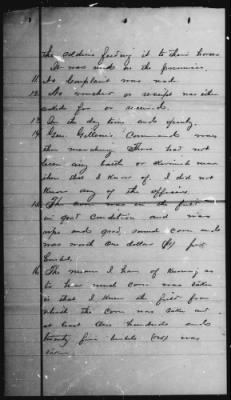 the soldiers feeding it to their horses
it was used on the premises.
11. No Complaint was made.
12. No voucher or receipt was either
asked for or received.
13. In the day time and openly.
14. Gen Command was
then marching There had not
been any battle or skirmish near
there that I know of. I did not
know any of the officers.
15. The corn was in the field
in good condition and was
ripe and good, sound corn and
was worth one dollar per
bushel.
16. The means I have of knowing as
to how much corn was taken
is that I knew the field from
which the corn was taken and
at least one hundred and
twenty five bushels (125) was
taken.